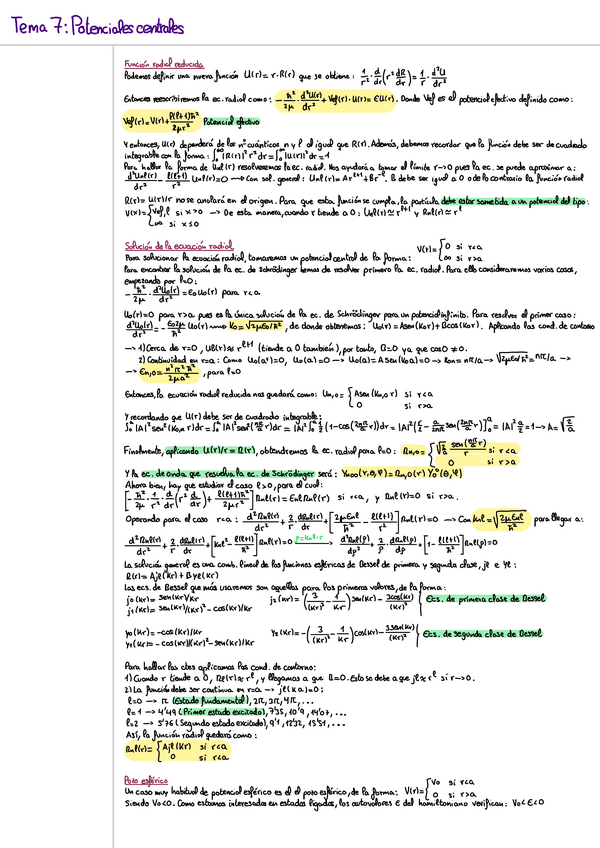 Tema 7: Potenciales centrales
Función radial reducida
Podemos definir una nueva función U(r) = r·R(r) que se obtiene: 1/r² · d/dr (r² dR/dr) = 1/r · d²U/dr²
Entonces reescribiremos la ec. radial como: -ħ²/2μ · d²U(r)/dr² + Vef(r)·U(r) = EU(r). Donde Vef es el potencial efectivo definido como:
Vef(r) = V(r) + l(l+1)ħ²/2μr² Potencial efectivo
Y entonces, U(r) dependerá de los nº cuánticos n y l al igual que R(r). Además, debemos recordar que la función debe ser de cuadrado
integrable con la forma: ∫₀^∞ |R(r)|² r² dr = ∫₀^∞ |U(r)|² dr = 1
Para hallar la forma de Unl(r) resolveremos la ec. radial. Nos ayudará a tomar el límite r→0 pues la ec. se puede aproximar a:
d²Unl(r)/dr² - l(l+1)/r² Unl(r) = 0 → Con sol. general: Unl(r) = Ar^(l+1) + Br^(-l). B debe ser igual a 0 o de lo contrario la función radial
R(r) = U(r)/r no se anulará en el origen. Para que esta función se cumpla, la partícula debe estar sometida a un potencial del tipo:
V(x) = { Vef,l si x>0 → De esta manera, cuando r tiende a 0: Unl(r) ≃ r^(l+1) y Rnl(r) ≃ r^l
∞ si x≤0
Solución de la ecuación radial
Para solucionar la ecuación radial, tomaremos un potencial central de la forma: V(r) = { 0 si r<a
∞ si r>a
Para encontrar la solución de la ec. de Schrödinger hemos de resolver primero la ec. radial. Para ello consideraremos varios casos,
empezando por l=0:
-ħ²/2μ · d²U₀(r)/dr² = E₀U₀(r) para r<a
U₀(r)=0 para r>a pues es la única solución de la ec. de Schrödinger para un potencial infinito. Para resolver el primer caso:
d²U₀(r)/dr² = -E₀2μ/ħ² U₀(r) → K₀ = √2μE₀/ħ², de donde obtenemos: U₀(r) = Asen(K₀r) + Bcos(K₀r). Aplicando las cond. de contorno
→ 1) Cerca de r=0, Ul(r) ≃ r^(l+1) (tiende a 0 también), por tanto, B=0 ya que cos0 ≠ 0.
2) Continuidad en r=a: Como U₀(a⁺)=0, U₀(a)=0 → U₀(a) = Asen(K₀a)=0 → K₀n = nπ/a → √2μE₀/ħ² = nπ/a →
→ En,0 = n²π²ħ²/2μa², para l=0
Entonces, la ecuación radial reducida nos quedará como: Un,0 = { Asen(Kn,0 r) si r<a
0 si r>a
Y recordando que U(r) debe ser de cuadrado integrable:
∫₀^a |A|² sen²(K₀,n r)dr = ∫₀^a |A|² sen²(nπ/a r)dr = |A|² ∫₀^a 1/2 (1-cos(2nπ/a r))dr = |A|² [r/2 - a/4nπ sen(2nπ/a r)]₀^a = |A|² a/2 = 1 → A = √2/a
Finalmente, aplicando U(r)/r = R(r), obtendremos la ec. radial para l=0: Rn,0 = { √2/a sen(nπ/a r)/r si r<a
0 si r>a
Y la ec. de onda que resuelva la ec. de Schrödinger será: Ψn00(r,θ,φ) = Rn,0(r) Y₀⁰(θ,φ)
Ahora bien, hay que estudiar el caso l>0, para el cual:
[-ħ²/2μ · 1/r² · d/dr (r² d/dr) + l(l+1)ħ²/2μr²] Rnl(r) = EnlRnl(r) si r<a, y Rnl(r)=0 si r>a.
Operando para el caso r<a: d²Rnl(r)/dr² + 2/r · dRnl(r)/dr + [2μEnl/ħ² - l(l+1)/r²] Rnl(r) = 0 → Con Knl = √2μEnl/ħ² para llegar a:
d²Rnl(r)/dr² + 2/r · dRnl(r)/dr + [Knl² - l(l+1)/r²] Rnl(r) = 0 ρ=Knl·r → d²Rnl(ρ)/dρ² + 2/ρ · dRnl(ρ)/dρ + [1 - l(l+1)/ρ²] Rnl(ρ) = 0
La solución general es una comb. lineal de las funciones esféricas de Bessel de primera y segunda clase, jl e yl:
R(r) = Ajl(Kr) + Byl(Kr)
Las ecs. de Bessel que más usaremos son aquellas para los primeros valores, de la forma:
j₀(Kr) = sen(Kr)/Kr j₂(Kr) = (3/(Kr)³ - 1/Kr) sen(Kr) - 3cos(Kr)/(Kr)² } Ecs. de primera clase de Bessel
j₁(Kr) = sen(Kr)/(Kr)² - cos(Kr)/Kr
y₀(Kr) = -cos(Kr)/Kr y₂(Kr) = -(3/(Kr)³ - 1/Kr) cos(Kr) - 3sen(Kr)/(Kr)² } Ecs. de segunda clase de Bessel
y₁(Kr) = -cos(Kr)/(Kr)² - sen(Kr)/Kr
Para hallar las ctes aplicamos las cond. de contorno:
1) Cuando r tiende a 0, Rl(r) ≃ r^l, y llegamos a que B=0. Esto se debe a que jl ≃ r^l si r→0.
2) La función debe ser continua en r=a → jl(Ka)=0:
l=0 → π (Estado fundamental), 2π, 3π, 4π, ...
l=1 → 4'49 (Primer estado excitado), 7'35, 10'9, 14'07, ...
l=2 → 5'76 (Segundo estado excitado), 9'1, 12'32, 15'51, ...
Así, la función radial quedará como:
Rnl(r) = { Ajl(Kr) si r<a
0 si r<a
Pozo esférico
Un caso muy habitual de potencial esférico es el del pozo esférico, de la forma: V(r) = { V₀ si r<a
0 si r>a
Siendo V₀<0. Como estamos interesados en estados ligados, los autovalores E del hamiltoniano verifican: V₀<E<0